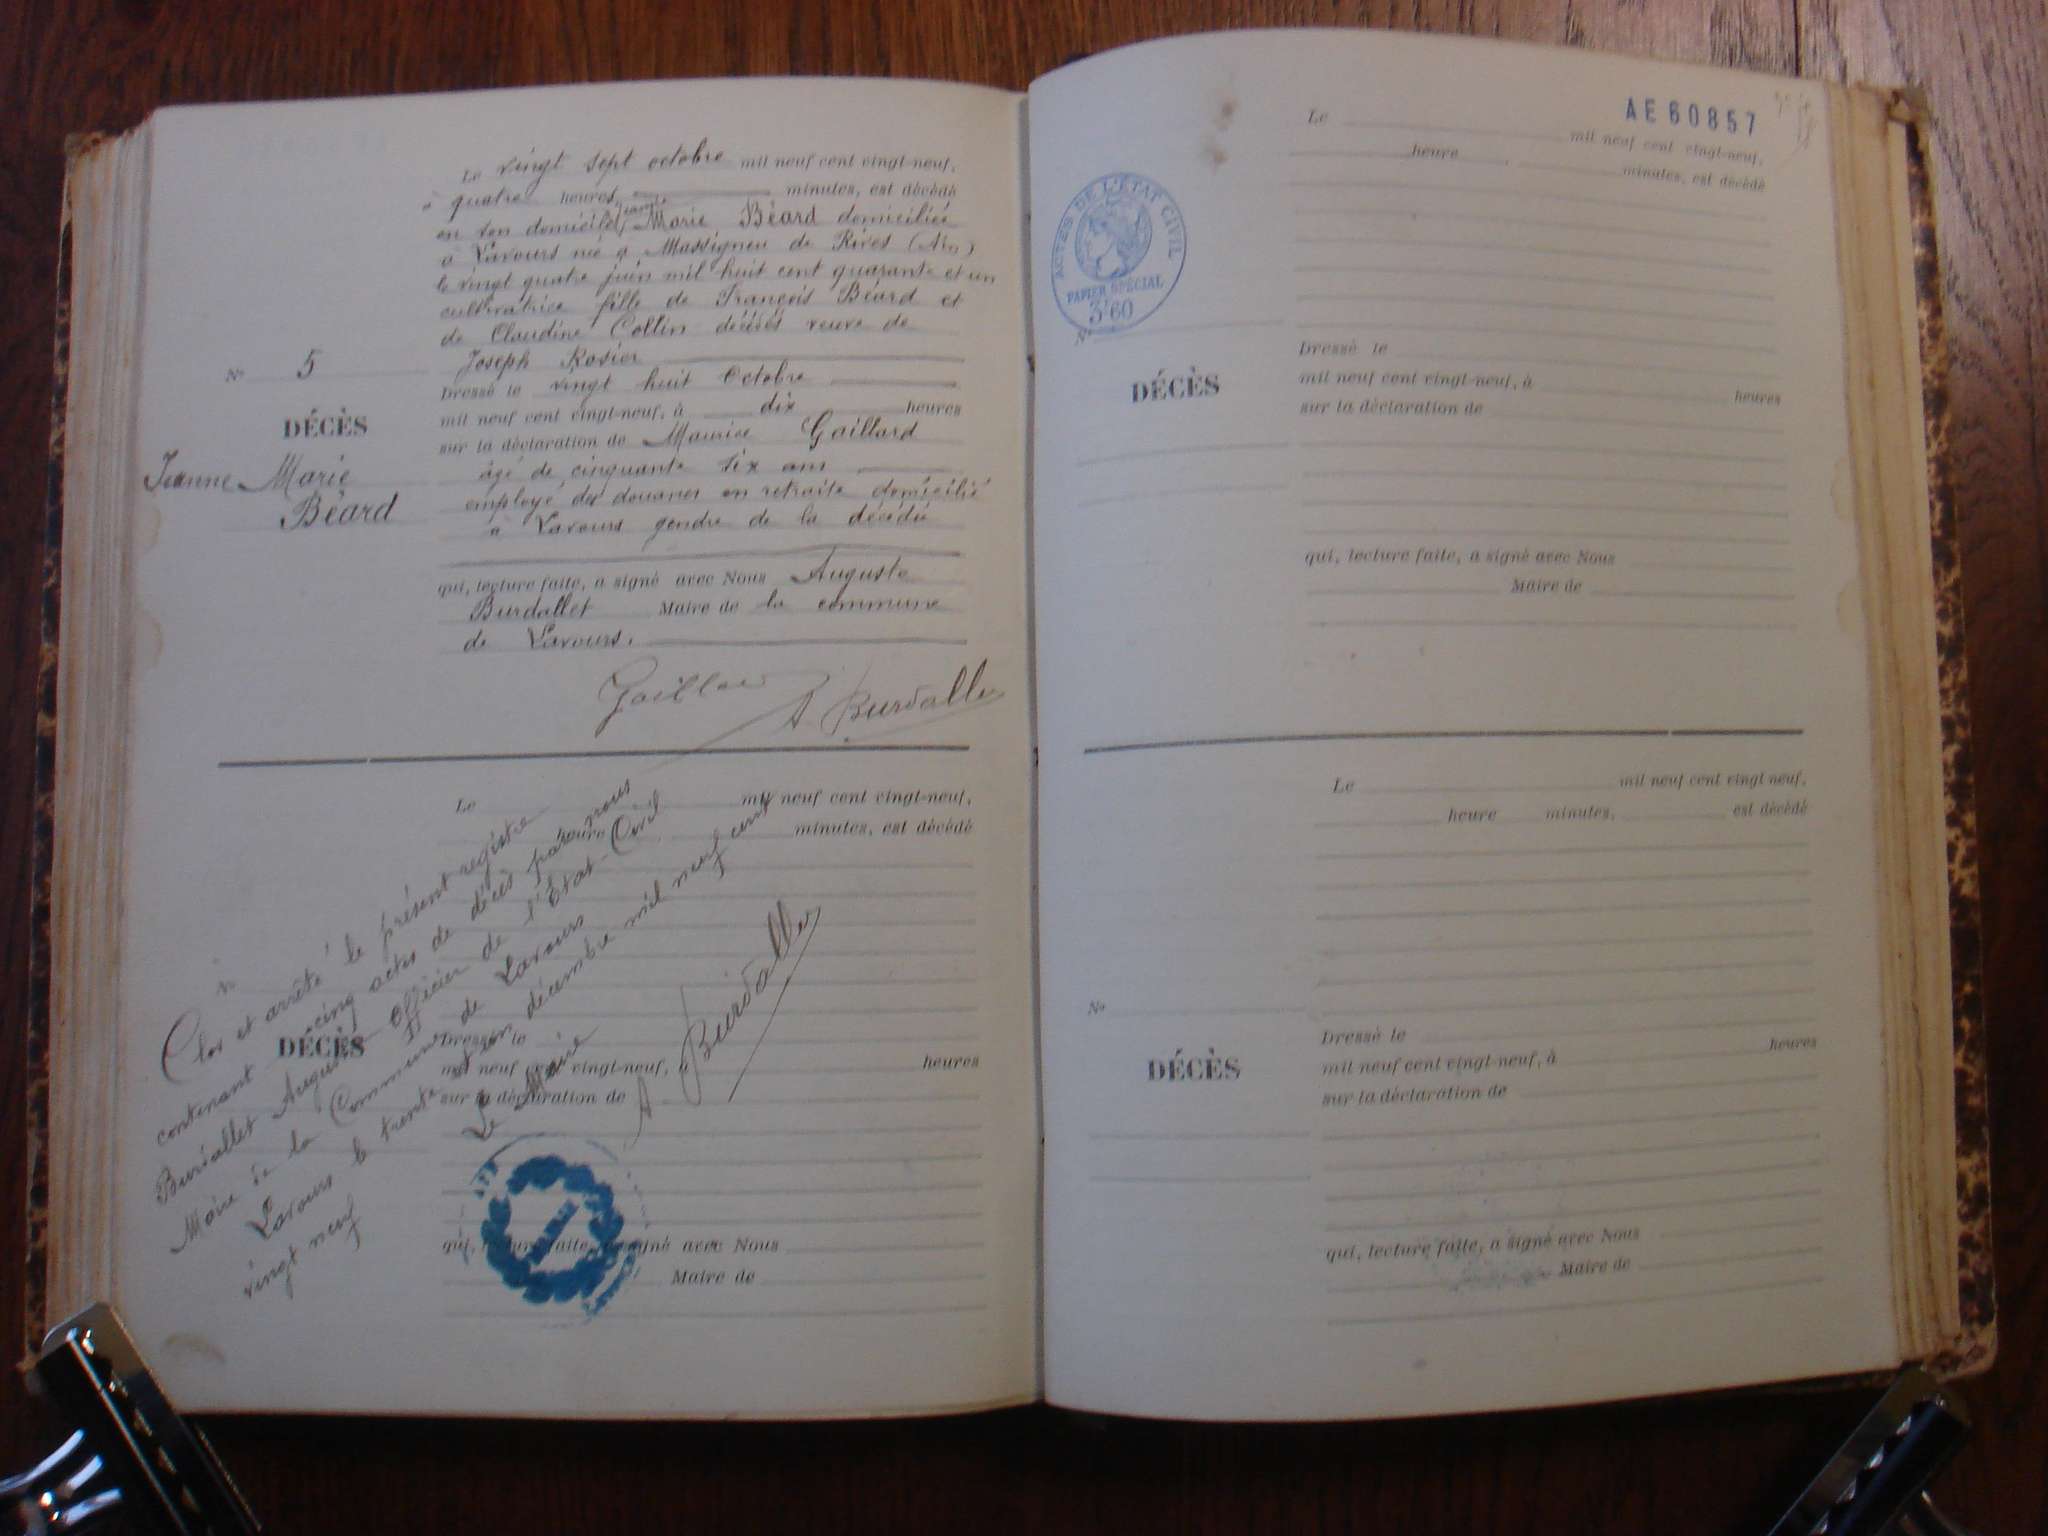 Le vingt sept octobre mil neuf cent vingt-neuf,
à quatre heures minutes, est décédé
en son domicile, Jeanne Marie Béard domiciliée
à Lavours née à Massigneu de Rives (Ain)
le vingt quatre juin mil huit cent quarante et un
cultivatrice fille de François Béard et
de Claudine Collin décédés veuve de
Joseph Rosier
Dressé le vingt huit Octobre
mil neuf cent vingt-neuf, à dix heures
sur la déclaration de Maurice Gaillard
âgé de cinquante six ans
employé des douanes en retraite domicilié
à Lavours gendre de la décédée
qui, lecture faite, a signé avec Nous Auguste
Burdallet Maire de la commune
de Lavours.
Gaillard A. Burdallet
No 5
DÉCÈS
Jeanne Marie
Béard
Le mil neuf cent vingt-neuf,
heure minutes, est décédé
No
DÉCÈS
Dressé le
mil neuf cent vingt-neuf, à heures
sur la déclaration de
qui, lecture faite, a signé avec Nous
Maire de
Clos et arrêté le présent registre
contenant cinq actes de décès par nous
Burdallet Auguste Officier de l'État-Civil
Maire de la Commune de Lavours
Lavours le trente et un décembre mil neuf cent
vingt neuf
Le Maire
A Burdallet
AE 60857
Le mil neuf cent vingt-neuf,
heure , minutes, est décédé
ACTES DE L'ÉTAT CIVIL
PAPIER SPÉCIAL
3f60
No
DÉCÈS
Dressé le
mil neuf cent vingt-neuf, à heures
sur la déclaration de
qui, lecture faite, a signé avec Nous
Maire de
Le mil neuf cent vingt-neuf,
heure minutes, est décédé
No
DÉCÈS
Dressé le
mil neuf cent vingt-neuf, à heures
sur la déclaration de
qui, lecture faite, a signé avec Nous
Maire de